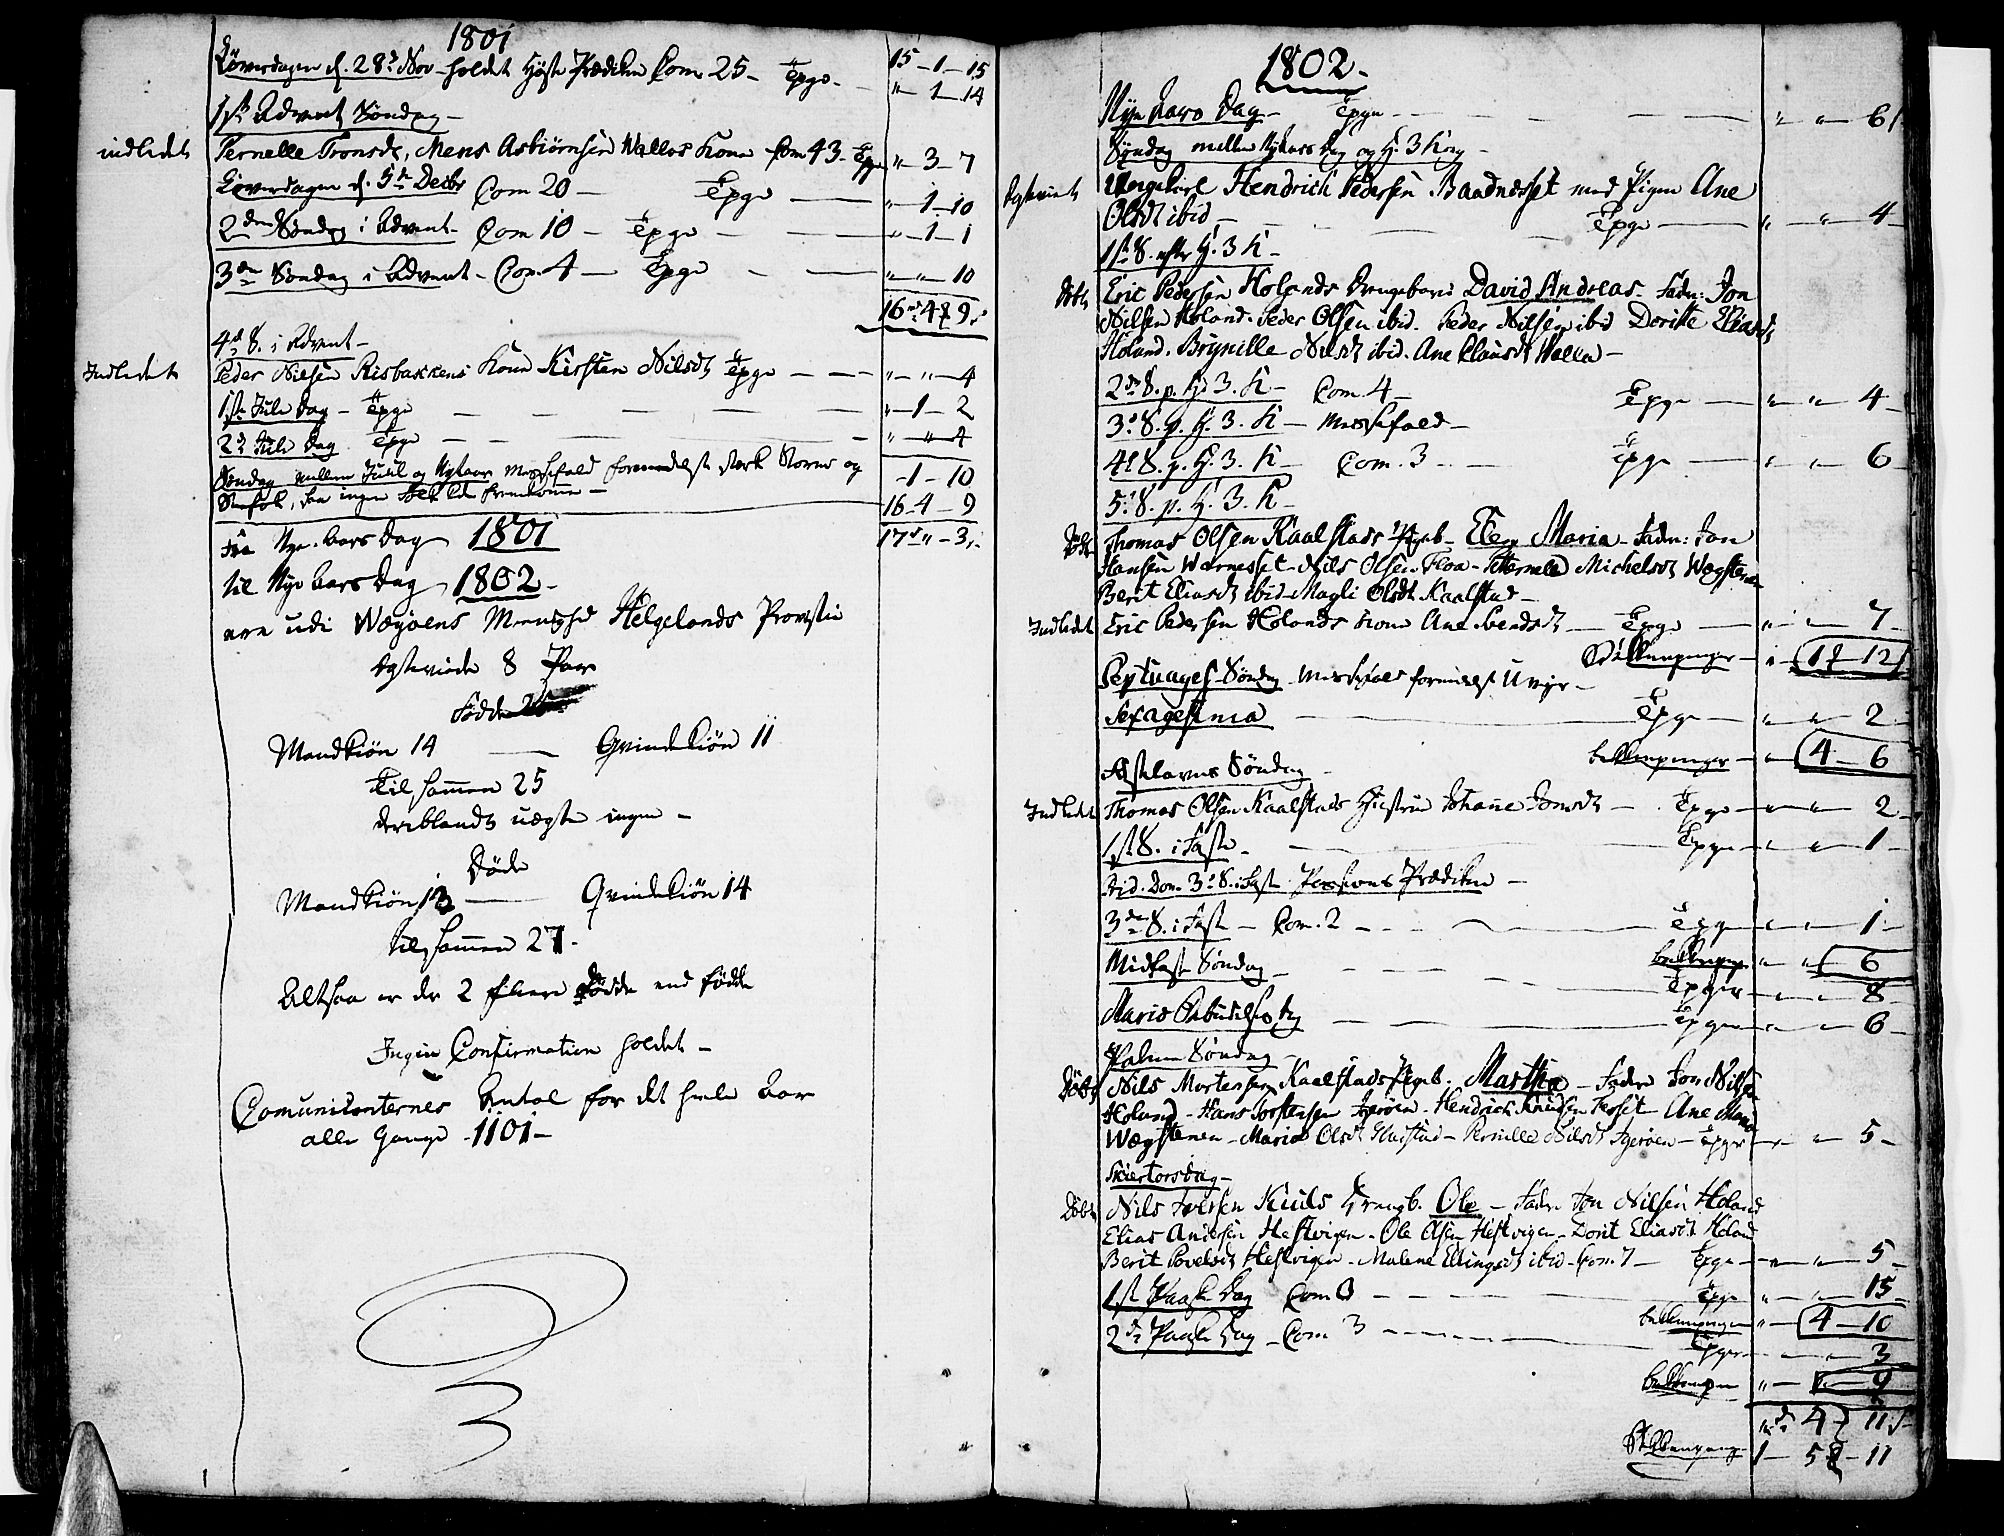 1801
Løverdagen d. 28d Nov holdet Høst Prædiken Com 25 - Tpge - 15 - 1 - 15
" - 1 - 14
1ste Advent Søndag -
indledet Pernelle Tronsdr, Mons Asbiørnsen Walles Kone Com 43 - Tpge " 3 - 7
Løverdagen d. 5te Decbr Com 20 - Tpge - " 1 - 10
2den Søndag i Advent - Com 10 - Tpge - " - 1 - 1
3de Søndag i Advent - Com. 4 - Tpge - " " 10
16 - 4 - 9
4de S. i Advent -
Indledet Peder Nilsen Risbakkens Kone Kirsten Nilsdr Tpge - " - " - 4
1ste Jule Dag - Tpge - " - 1 - 2
2d Jule Dag Tpge - " - " - 4
Søndag mellem Juul og Nytaar Messefald formedelst stærk Storm og - 1 - 10
Snefok, saa ingen Folk kde fremkomme - 16 - 4 - 9
17 - " - 3
Fra Nye Aars Dag 1801
til Nye Aars Dag 1802 -
ere udi Wægøens Menighd Helgelands Provstie
Ægteviede 8 Par
Fødde
Mandkiøn 14 - Qvindekiøn 11
Tilsammen 25
deriblandt uægte ingen -
Døde
Mandkiøn 13 - Qvindekiøn 14
tilsammen 27 -
Altsaa er der 2 flere døde end fødde
Ingen Confirmation holdet -
Comunicanternes Antal for det heele Aar
alle Gange - 1101 -
1802 -
Nye Aars Dag - Tpge - " " 6
Søndag mellem Nytaars Dag og H. 3 Kong -
Ægteviet Ungekarl Hendrich Pedersen Baadnesset med Pigen Ane
Olsdt ibid - Tpge - " " 4
1ste S. efter H. 3 K -
Døbt Eric Pedersen Holands Drengebarn David Andreas. Fadr: Jon
Nilsen Holand. Peder Olsen ibid. Peder Nilsen ibid Doritte Eliasdr
Holand. Brynille Nilsdt ibid. Ane Clausdt Walla -
2de S. p. H. 3. K - Com. 4 - Tpge - " " 4
3d S. p. H. 3. K - Messefald -
4d S. p. H. 3. K - Com. 3 - Tpge - " " 6
5d S. p. H. 3. K -
Døbt Thomas Olsen Kaalstads Pgeb - Elen Maria - Fadr: Jon
Hansen Warnesset - Nils Olsen Floa - Pernele Michelsdt Wægstenen
Berit Eliasdt ibid - Magli Olsdt Kaalstad -
Indledet Eric Pedersen Holands Kone Ane Svendsdt - Tpge - " " 7
17 - 12
Septuages. Søndag Messefald formedelst Uveir -
Sexagesima - Tpge - " " 2
bekkenpenger - " 4 - 6
Fastelavns Søndag -
Indledet Thomas Olsen Kaalstads Hustrue Johanne Jonsdt - Tpge - " " 2
1ste S. i Faste - Tpge - " " 1
Passions Prædiken -
3de S. i Faste - Com. 2 - Tpge " " 1
Midfaste Søndag - " " 6
Tpger - " 8
Mariæ Bebudelses Dag - Tpge " " 6
Palme Søndag -
Døbt Nils Mortensen Kaalstads Pgeb. Martha - Fadre Jon Nilsen
Holand - Hans Torstensen Igerøen - Hendrich Knudsen Ane Maria
Wægstenen - Maria Olsdt - Pernille Nilsdt Igerøen - Tpge - " 5 -
Skiertorsdag -
Døbt Nils Iversen Drengb. Ole - Fadr Jon Nilsen Holand
Elias Andersen Hestvigen - Ole Olsen Hestvigen - Dorit Eliasdt Holand
Berit Povelsdt Hestvigen - Malene Ellingsdt ibid - Com. 7 - Tpge - " " 5 -
1ste Paaske Dag Com 3 - Tpge - " " 15
bekkenpenger " 4 - 10
2de Paaske Dag - Com 3 - Tpge - " " 3
9
4 - 11
1 - 5 - 11